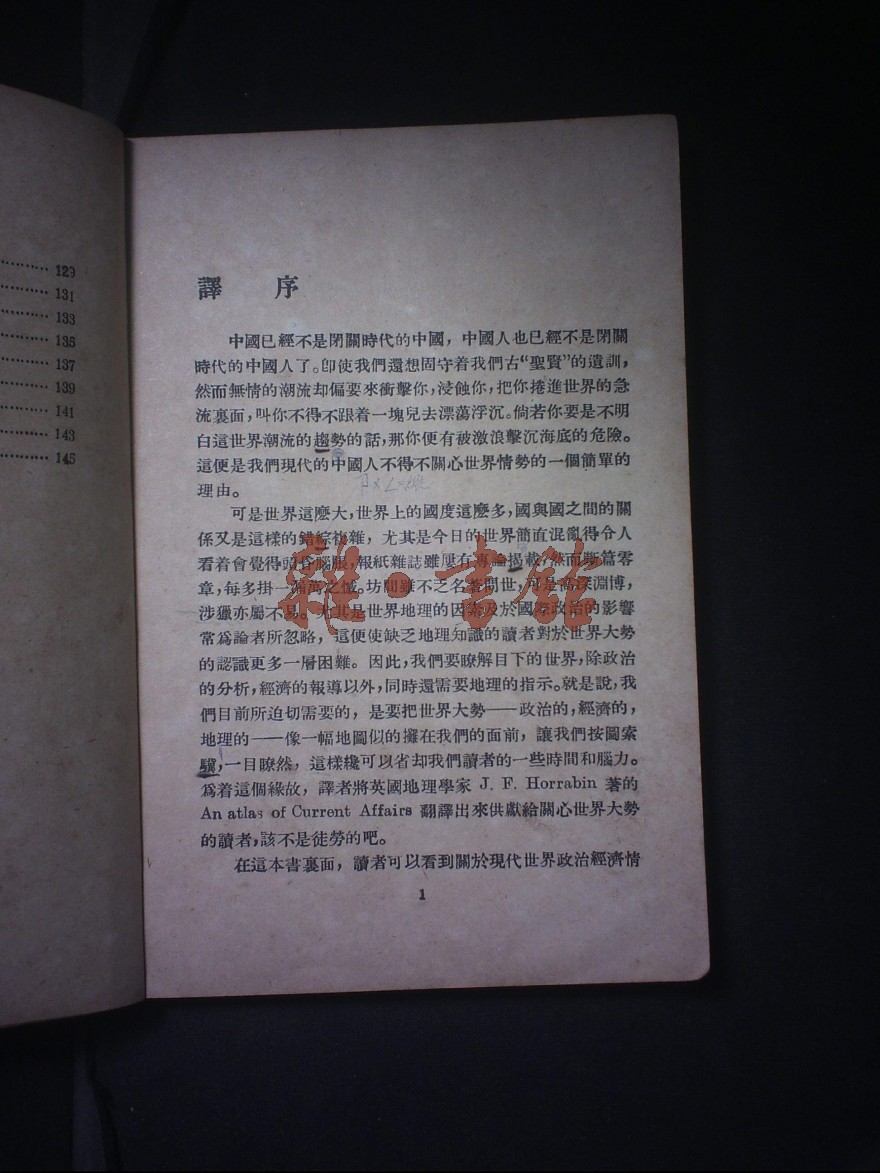 129
131
133
135
137
139
141
143
145
譯 序
中國已經不是閉關時代的中國，中國人也已經不是閉關
時代的中國人了。卽使我們還想固守着我們古“聖賢”的遺訓，
然而無情的潮流却偏要來衝擊你，浸蝕你，把你捲進世界的急
流裏面，叫你不得不跟着一塊兒去漂蕩浮沉。倘若你要是不明
白這世界潮流的趨勢的話，那你便有被激浪擊沉海底的危險。
這便是我們現代的中國人不得不關心世界情勢的一個簡單的
理由。
可是世界這麽大，世界上的國度這麽多，國與國之間的關
係又是這樣的錯綜複雜，尤其是今日的世界簡直混亂得令人
看着會覺得頭昏腦脹，報紙雜誌雖屢有專論揭載，然而斷篇零
章，每多掛一漏萬之憾。坊間雖不乏名著問世，可是高深淵博，
涉獵亦屬不易。尤其是世界地理的因素及於國際政治的影響
常爲論者所忽略，這便使缺乏地理知識的讀者對於世界大勢
的認識更多一層困難。因此，我們要瞭解目下的世界，除政治
的分析，經濟的報導以外，同時還需要地理的指示。就是說，我
們目前所迫切需要的，是要把世界大勢——政治的，經濟的，
地理的——像一幅地圖似的攤在我們的面前，讓我們按圖索
驥，一目瞭然，這樣纔可以省却我們讀者的一些時間和腦力。
爲着這個緣故，譯者將英國地理學家 J. F. Horrabin 著的
An atlas of Current Affairs 翻譯出來供獻給關心世界大勢
的讀者，該不是徒勞的吧。
在這本書裏面，讀者可以看到關於現代世界政治經濟情
1
雜·書館